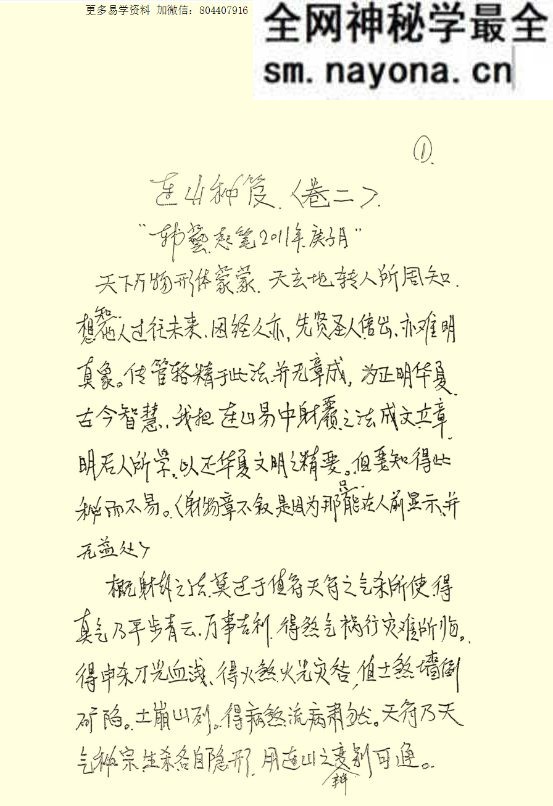 更多易学资料 加微信：804407916
全网神秘学最全
sm.nayona.cn
①
连山神笈《卷二》
"韩藝起笔2011年庚子月"
天下万物形体蒙蒙．天玄地转人所周知．
想知他人过往未来．因经久亦，先贤圣人倍出．亦难明
真象。传管辂精于此法．并无章成，为正明华夏
古今智慧．我把连山易中射覆之法成文立章
明后人所学．以还华夏文明之精要。但要知得此
秘而不易。〈射物章不叙是因为那只能在人前显示．并
无益处〉
概射卦之法．莫过于值符天符之气杀所使．得
真气乃平步青云．万事吉利．得煞气祸行灾难所临。
得申杀刀光血浅．得火煞火光灾咎，值土煞墙倒
矿陷．土崩山裂．得病煞流病肃然。天符乃天
气神宗生杀各自隐形．用连山之变辨别可通。